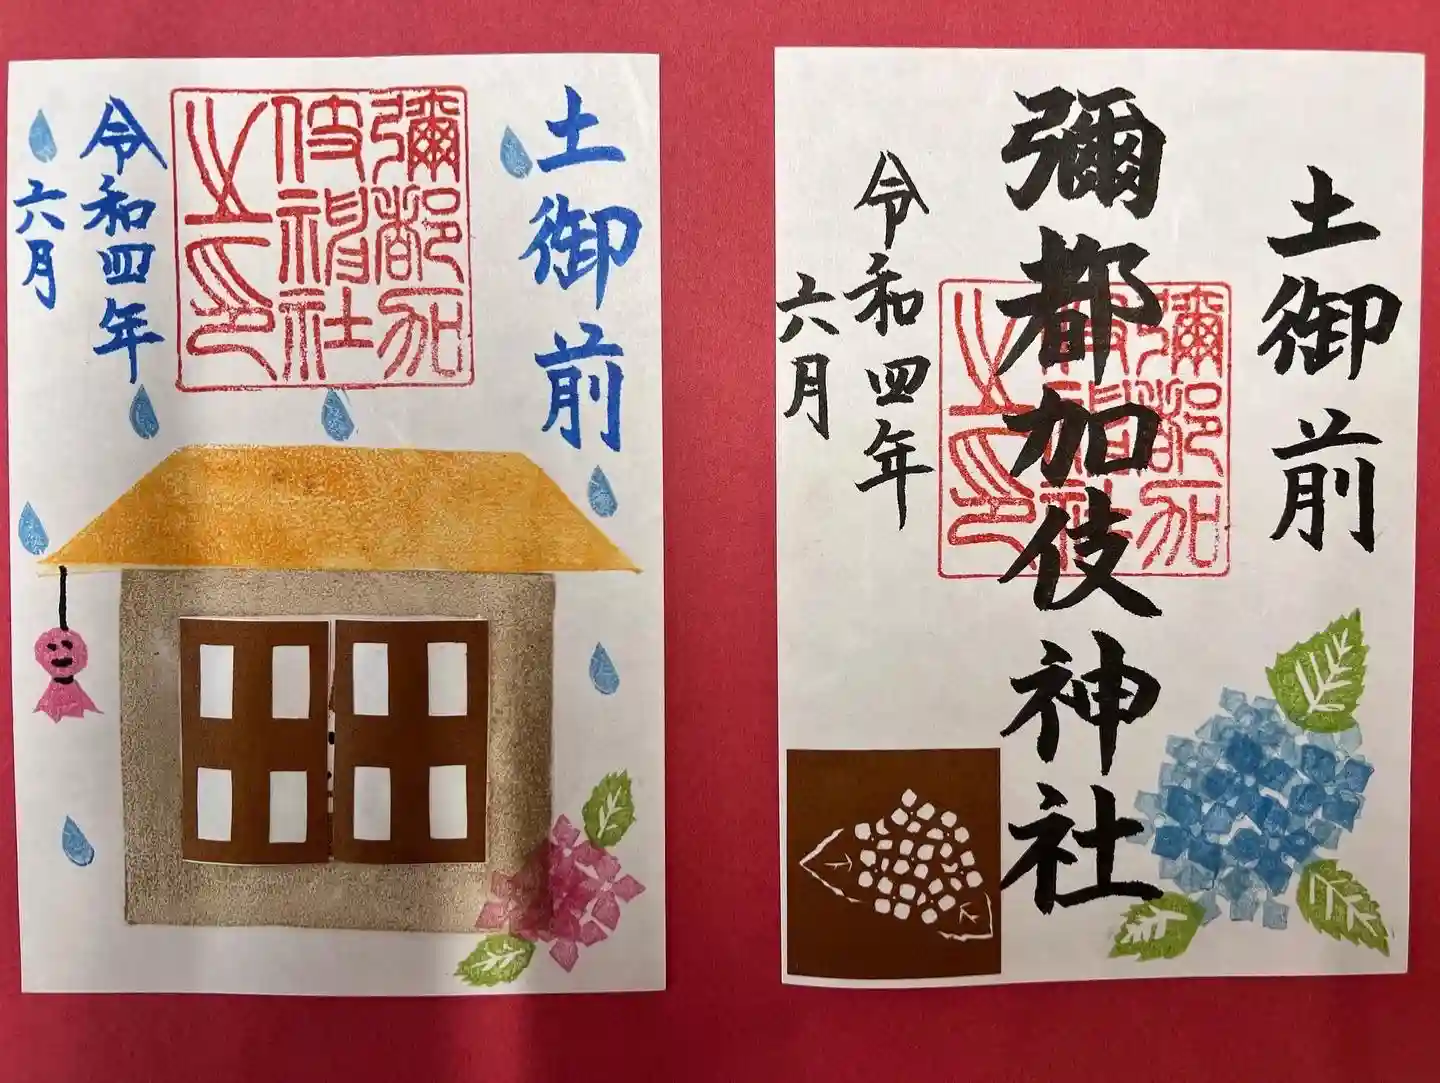 土御前
彌都加
伎神社
之印
令和四年
六月
土御前
彌都加伎神社
彌都加
伎神社
之印
令和四年
六月